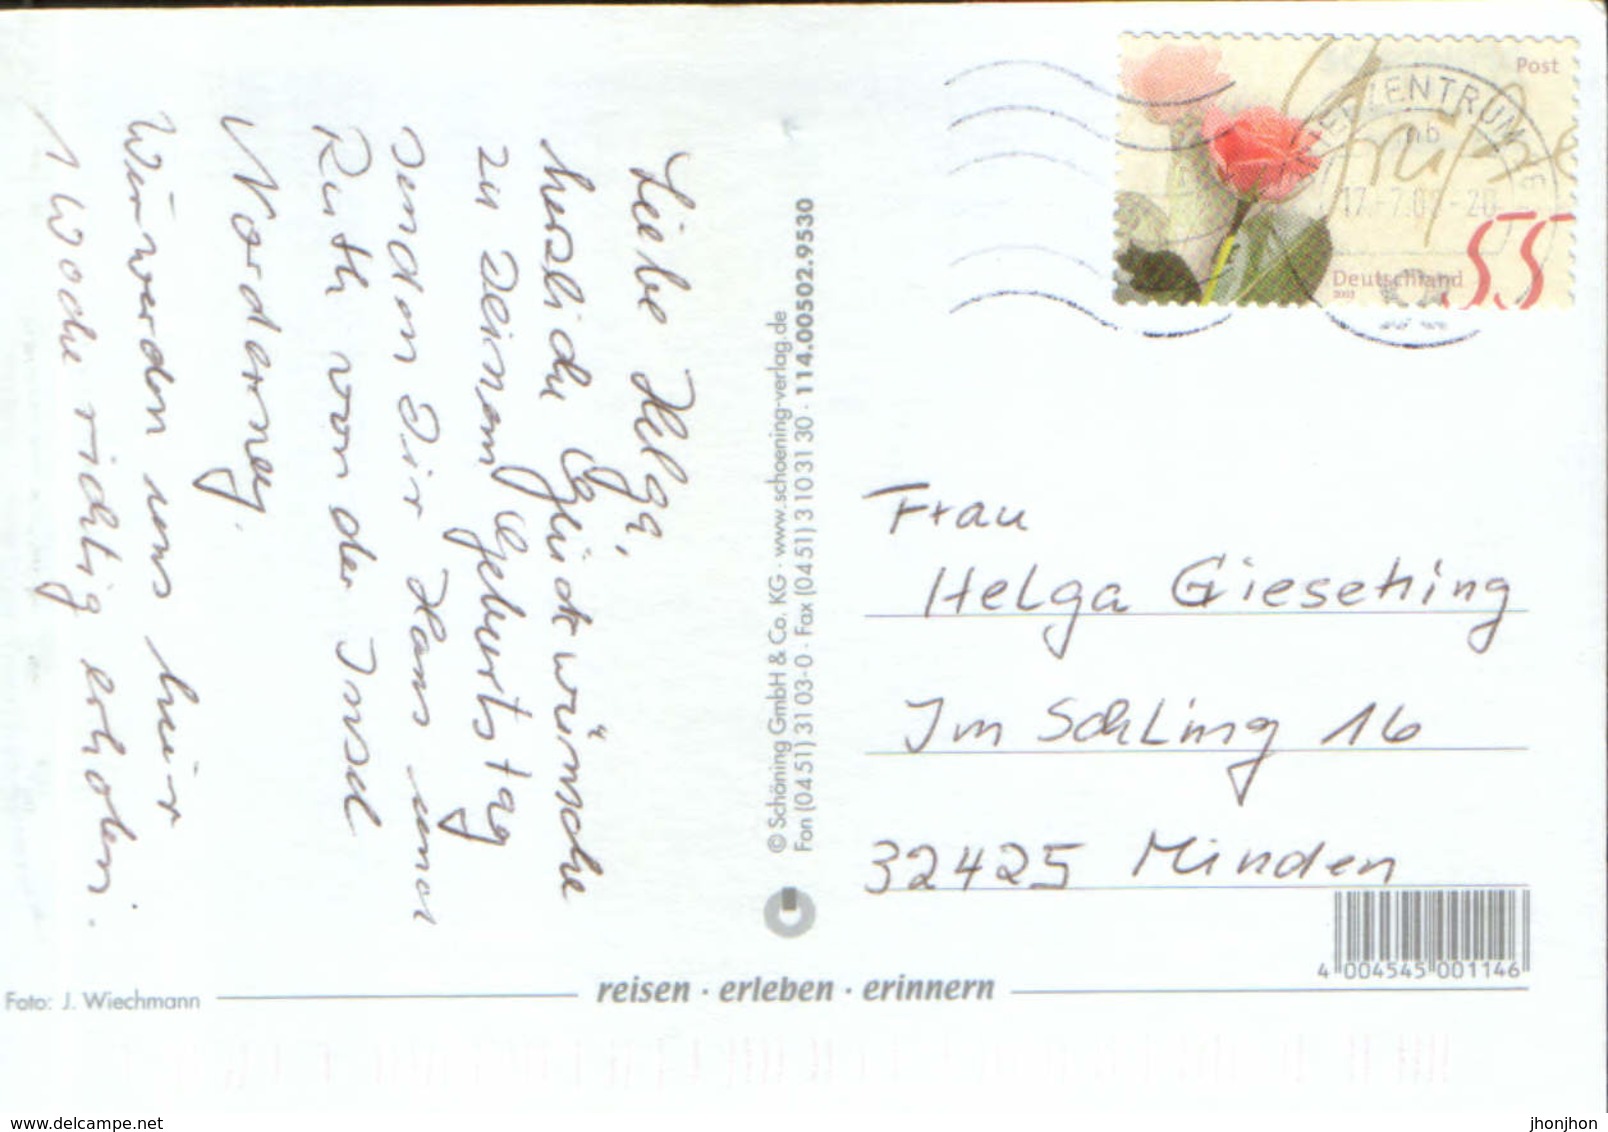 Liebe Helga,
herzliche Glückwünsche
zu Deinem Geburtstag
senden Dir Hans und
Ruth von der Insel
Norderney.
Wir werden uns hier
1 Woche richtig erholen.
© Schöning GmbH & Co. KG · www.schoening-verlag.de
Fon (04 51) 3 10 3-0 · Fax (04 51) 3 10 31 30 · 114.00502.9530
Post
Grüße
ZENTRUM
nb
Deutschland
2003
55
Frau
Helga Gieseking
Im Schling 16
32425 Minden
4 004545 001146
Foto: J. Wiechmann
reisen · erleben · erinnern
www.delcampe.net
jhonjhon